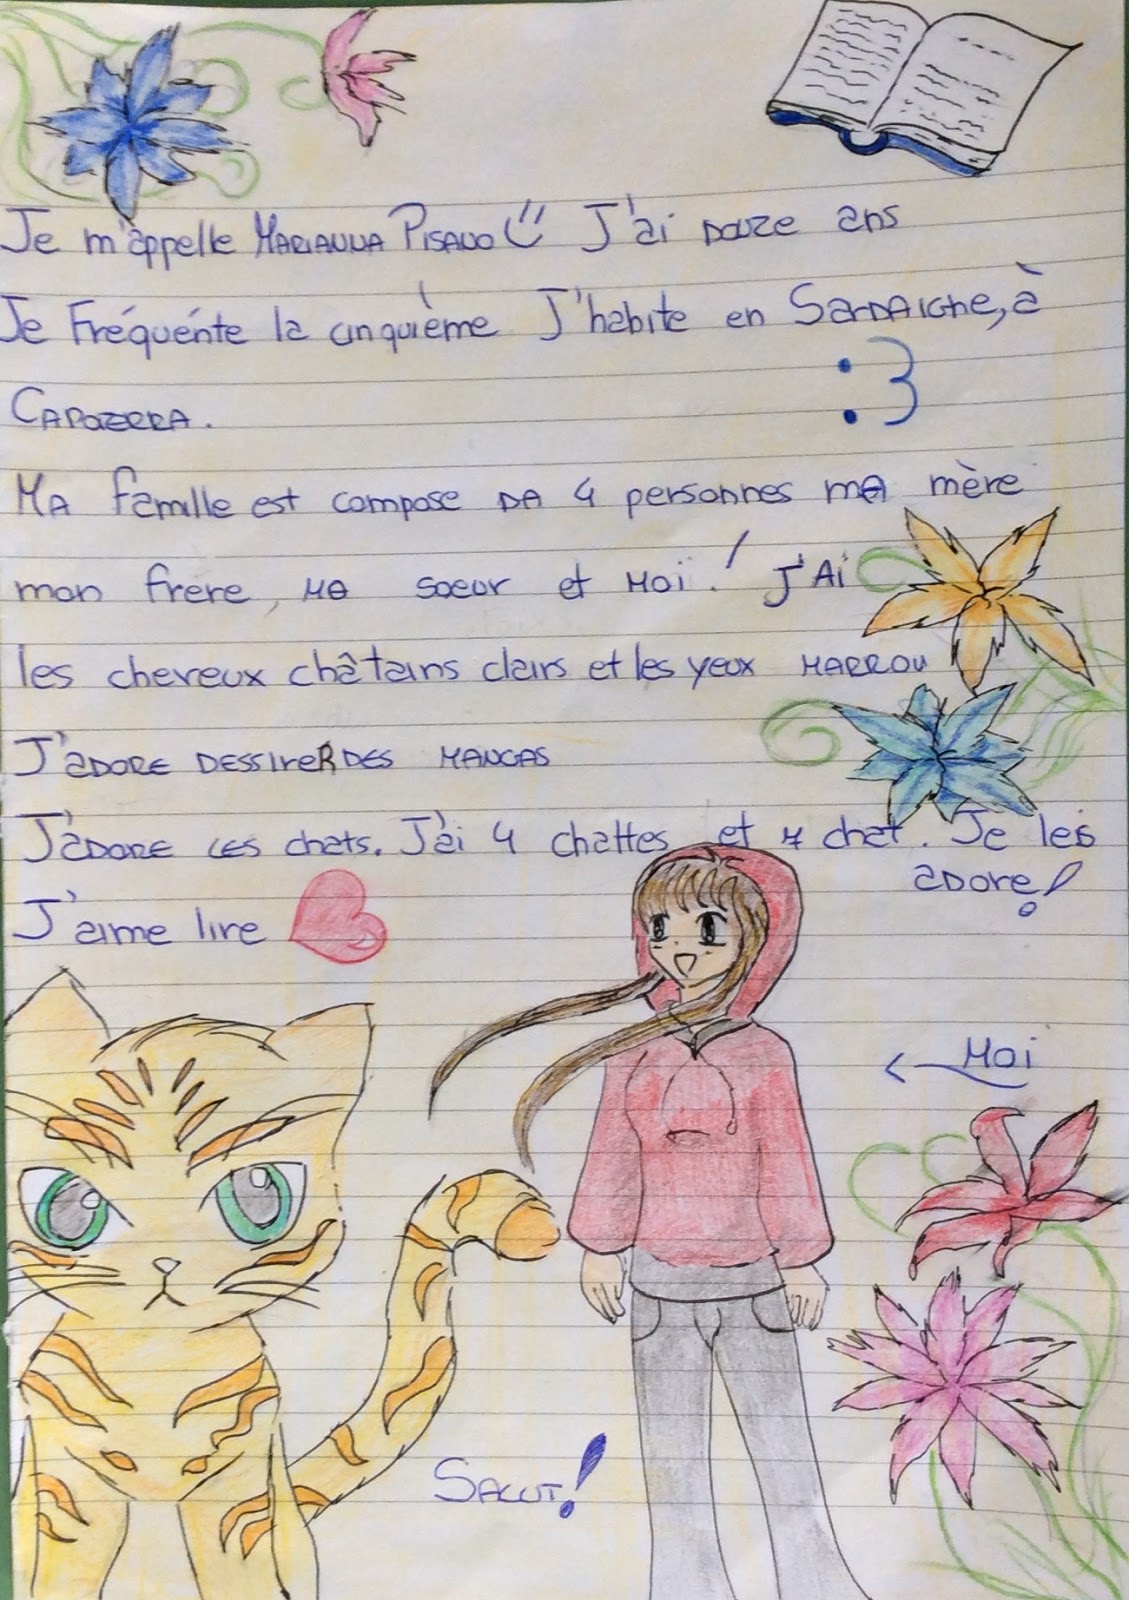 Je m'appelle MARIANNA PISANO J'ai DOUZE ans
Je Fréquénte la cinquième J'habite en SARDAIGNE, à
CAPOTERRA.
:3
MA Famille est compose DA 4 personnes ma mère
mon frère, MA soeur et Moi! J'Ai
les cheveux châtains clairs et les yeux MARRON
J'ADORE DESSINER DES MANGAS
J'ADORE LES chats. J'ai 4 chattes et 1 chat. Je les
adore!
J'aime lire
Moi
SALUT!